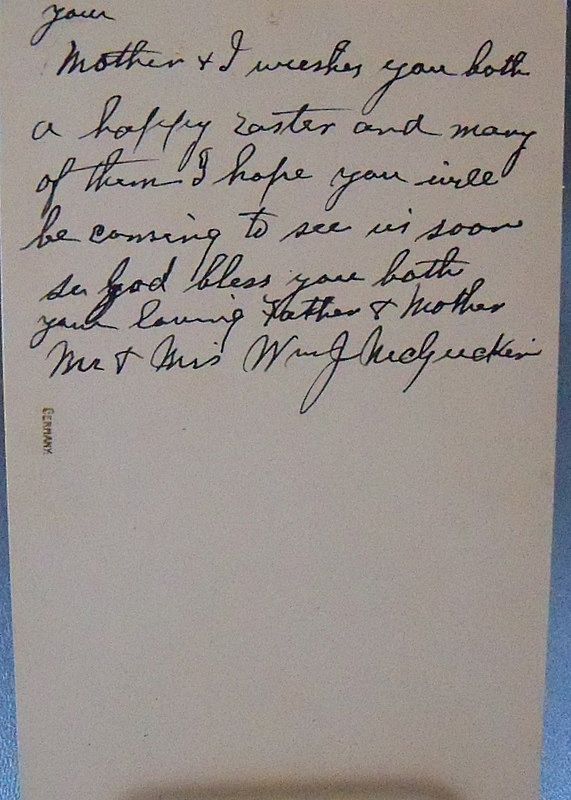 your
Mother & I wishes you both
a happy Easter and many
of them I hope you will
be coming to see us soon
so God bless you both
your loving Father & Mother
Mr & Mrs Wm J McGuckin
GERMANY.